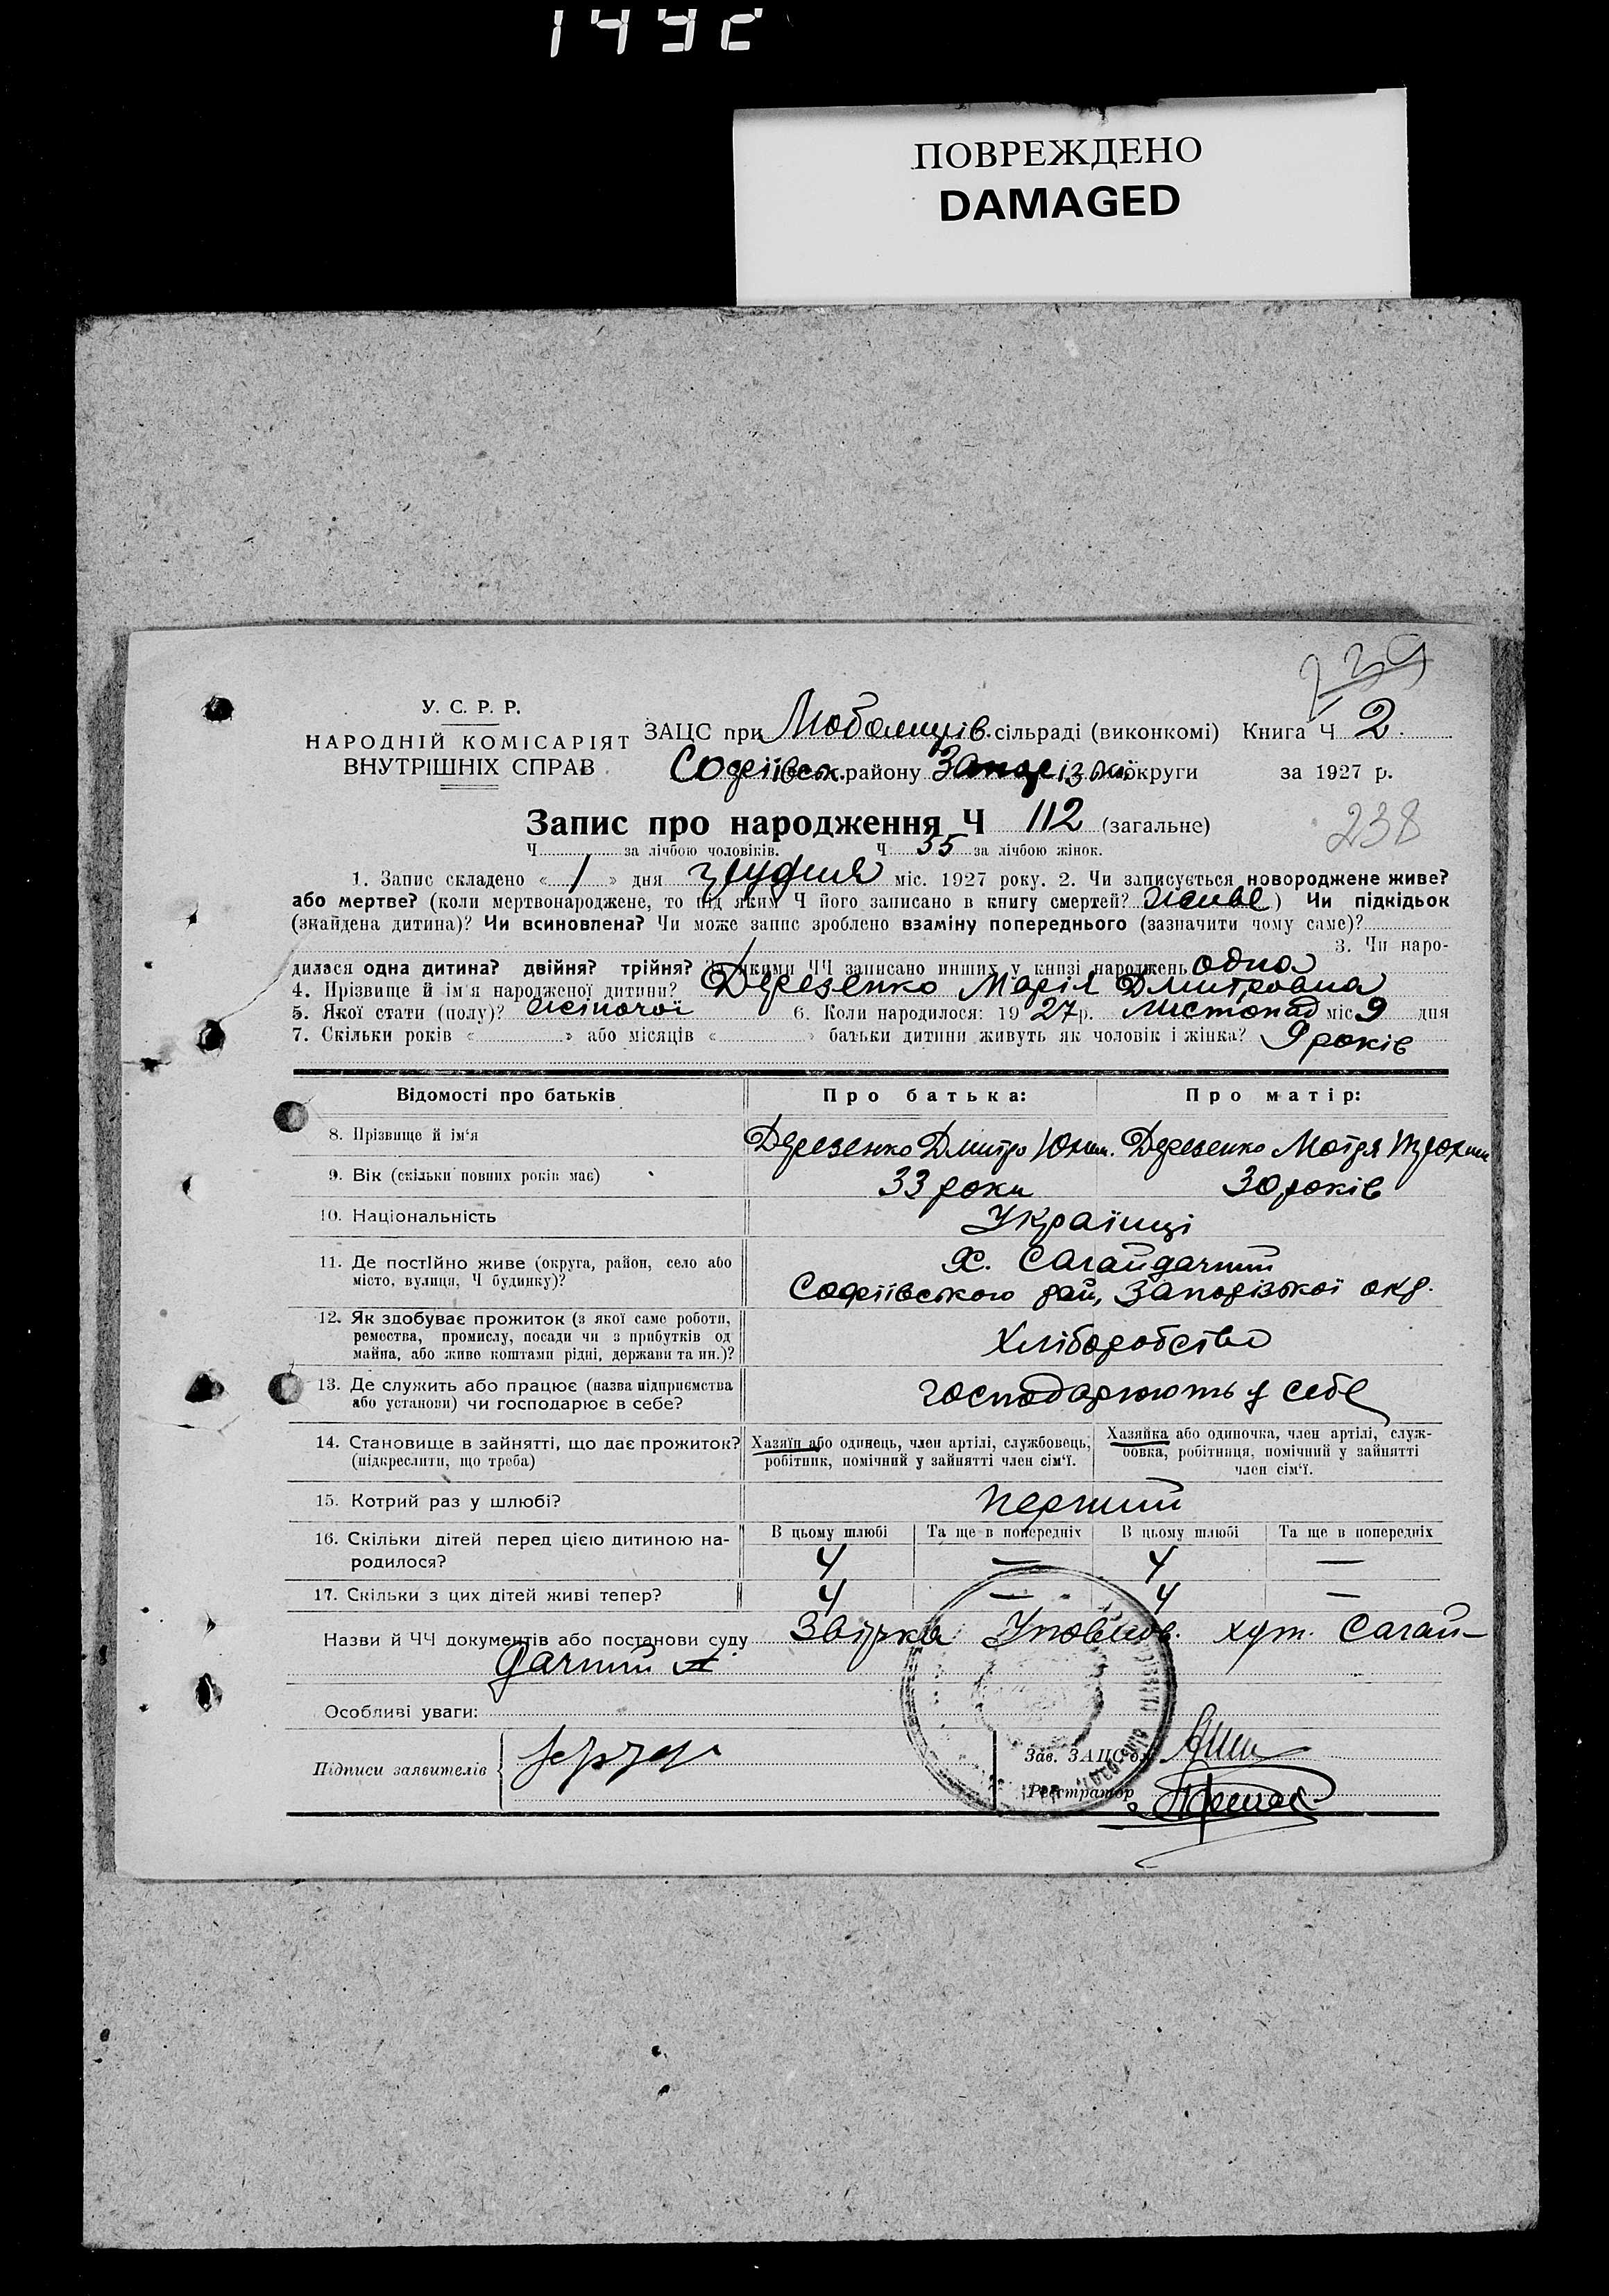 ПОВРЕЖДЕНО
DAMAGED
239
У. С. Р. Р.
НАРОДНІЙ КОМІСАРІЯТ
ВНУТРІШНІХ СПРАВ
ЗАЦС при Любомирів. сільраді (виконкомі) Книга Ч 2
Софіївськ. району Запорізької округи за 1927 р.
Запис про народження Ч 112 (загальне)
238
Ч за лічбою чоловіків. Ч 35 за лічбою жінок.
1. Запис складено « 1 » дня грудня міс. 1927 року. 2. Чи записується новороджене живе?
або мертве? (коли мертвонароджене, то під яким Ч його записано в книгу смертей? живе ) Чи підкідьок
(знайдена дитина)? Чи всиновлена? Чи може запис зроблено взаміну попереднього (зазначити чому саме)?
3. Чи наро-
дилася одна дитина? двійня? трійня? За якими ЧЧ записано инших у книзі народжень одна
4. Прізвище й ім'я народженої дитини? Дерезенко Марія Дмитровна
5. Якої стати (полу)? жіночої 6. Коли народилося: 1927 р. листопад міс 9 дня
7. Скільки років « » або місяців « » батьки дитини живуть як чоловік і жінка? 9 років
Відомості про батьків Про батька: Про матір:
8. Прізвище й ім'я Дерезенко Дмитро Юхим. Дерезенко Мотря Трохим
9. Вік (скільки повних років має) 33 роки 30 років
10. Національність Українці
11. Де постійно живе (округа, район, село або
місто, вулиця, Ч будинку)?
Х. Сагайдачний
Софіївського рай, Запорізької окр.
12. Як здобуває прожиток (з якої саме роботи,
ремества, промислу, посади чи з прибутків од
майна, або живе коштами рідні, держави та ин.)?
Хліборобство
13. Де служить або працює (назва підприємства
або установи) чи господарює в себе?
господарюють у себе
14. Становище в зайнятті, що дає прожиток?
(підкреслити, що треба)
Хазяїн або одинець, член артілі, службовець,
робітник, помічний у зайнятті член сім'ї.
Хазяйка або одиночка, член артілі, служ-
бовка, робітниця, помічний у зайнятті
член сім'ї.
15. Котрий раз у шлюбі? перший
16. Скільки дітей перед цією дитиною на-
родилося?
В цьому шлюбі Та ще в попередніх В цьому шлюбі Та ще в попередніх
4 — 4 —
17. Скільки з цих дітей живі тепер? 4 — 4 —
Назви й ЧЧ документів або постанови суду Звірка Уповнов. хут. Сагай-
дачний
Особливі уваги:
Підписи заявителів
Зав. ЗАЦС'ом
Реєстратор